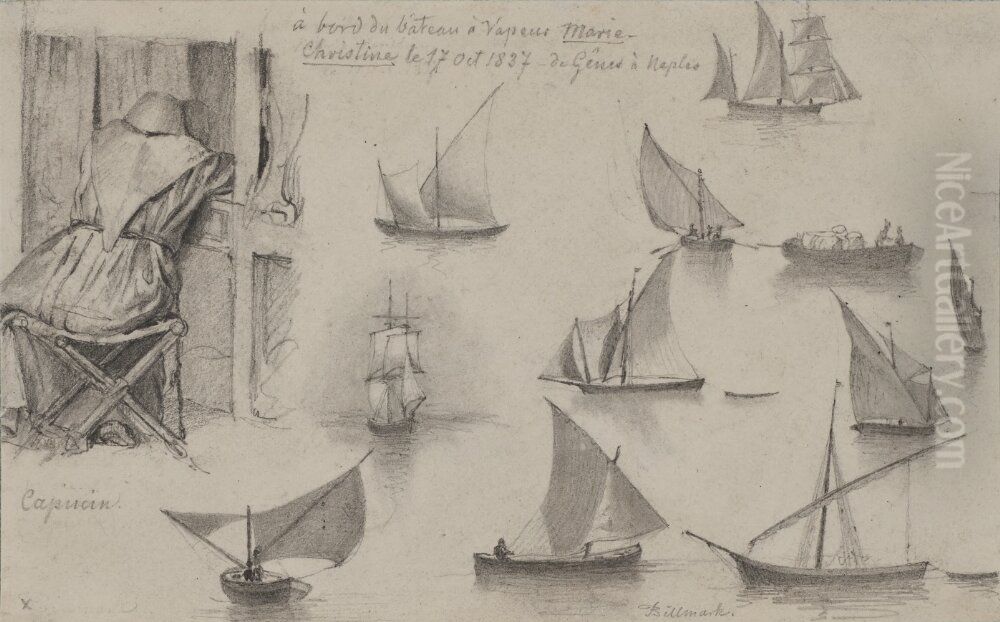 à bord du bâteau à Vapeur Marie-
Christine le 17 Oct 1837 - de Gênes à Naples
Capucin.
Billmark.
x
NiceArtGallery.com